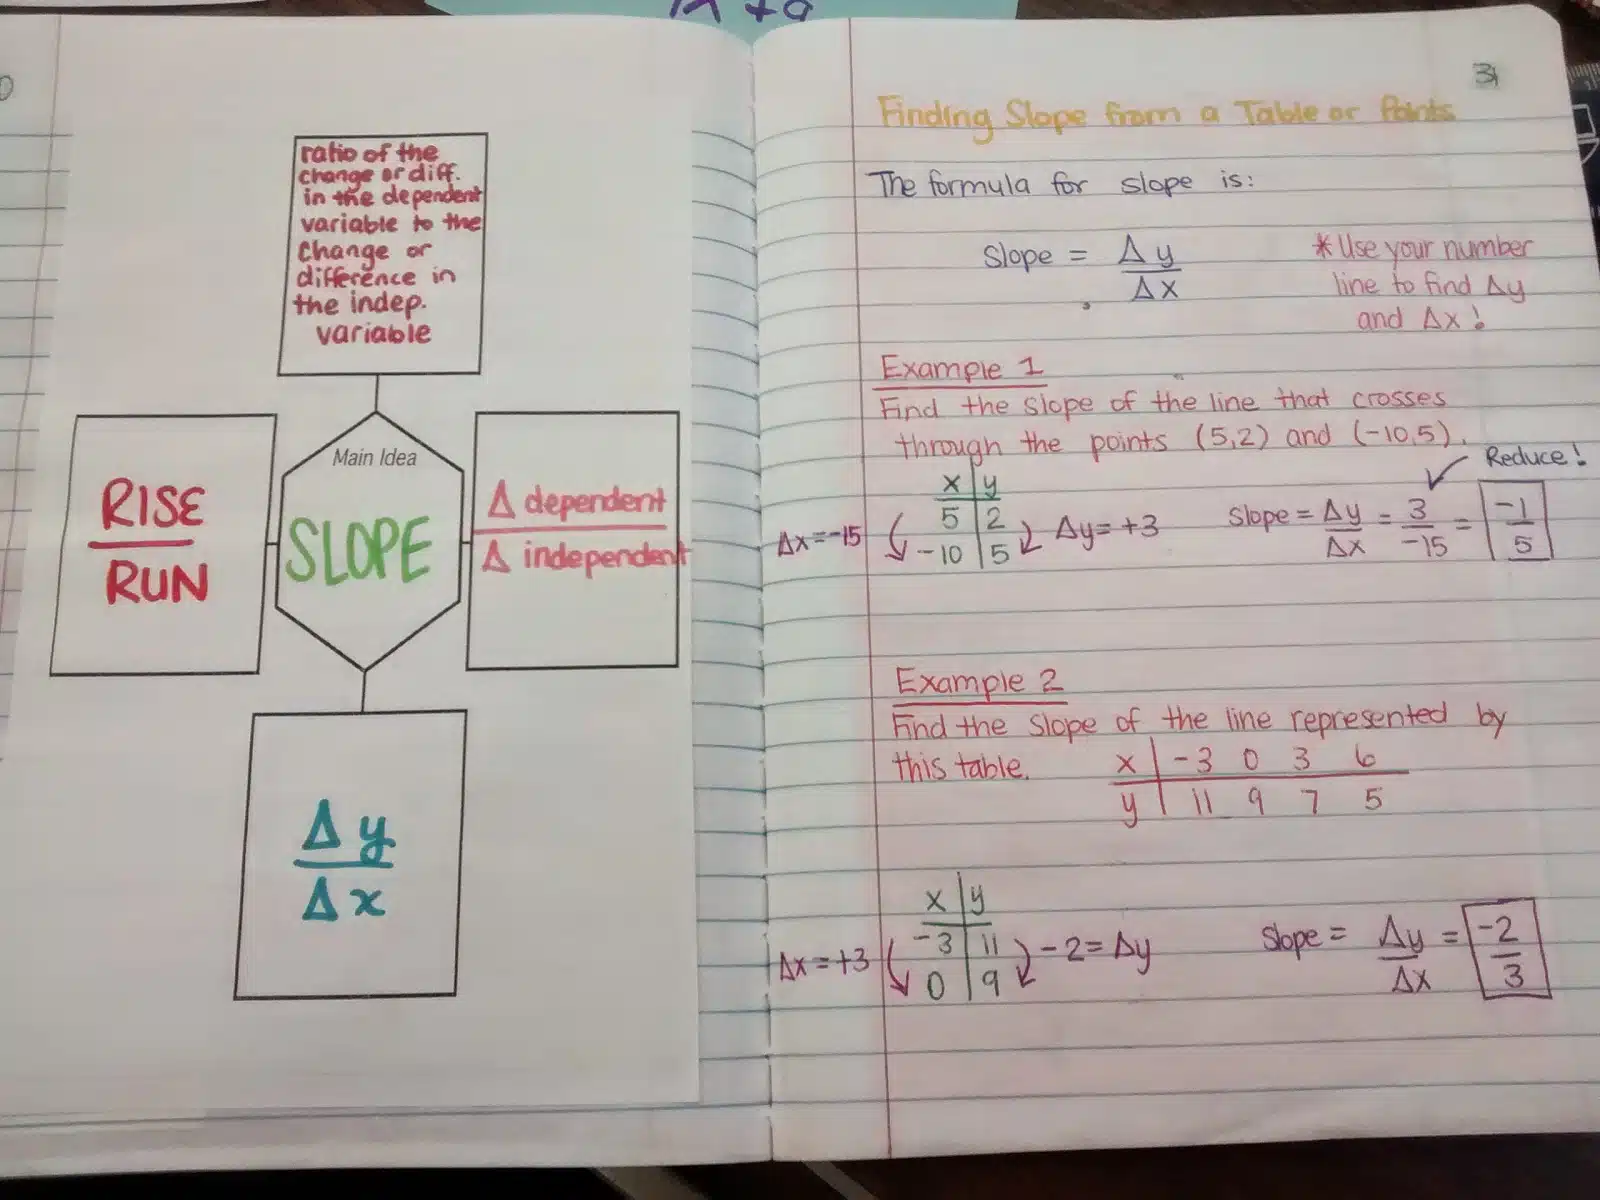 ratio of the
change or diff.
in the dependent
variable to the
change or
difference in
the indep.
variable
Main Idea
SLOPE
RISE
RUN
Δ dependent
Δ independent
Δy
Δx
31
Finding Slope from a Table or Points
The formula for slope is:
Slope = Δy
Δx
*Use your number
line to find Δy
and Δx!
Example 1
Find the slope of the line that crosses
through the points (5,2) and (-10,5).
Reduce!
x y
5 2
-10 5
Δx=-15
Δy=+3
Slope = Δy = 3 = -1
Δx -15 5
Example 2
Find the slope of the line represented by
this table.
x -3 0 3 6
y 11 9 7 5
x y
-3 11
0 9
Δx=+3
-2=Δy
Slope = Δy = -2
Δx 3